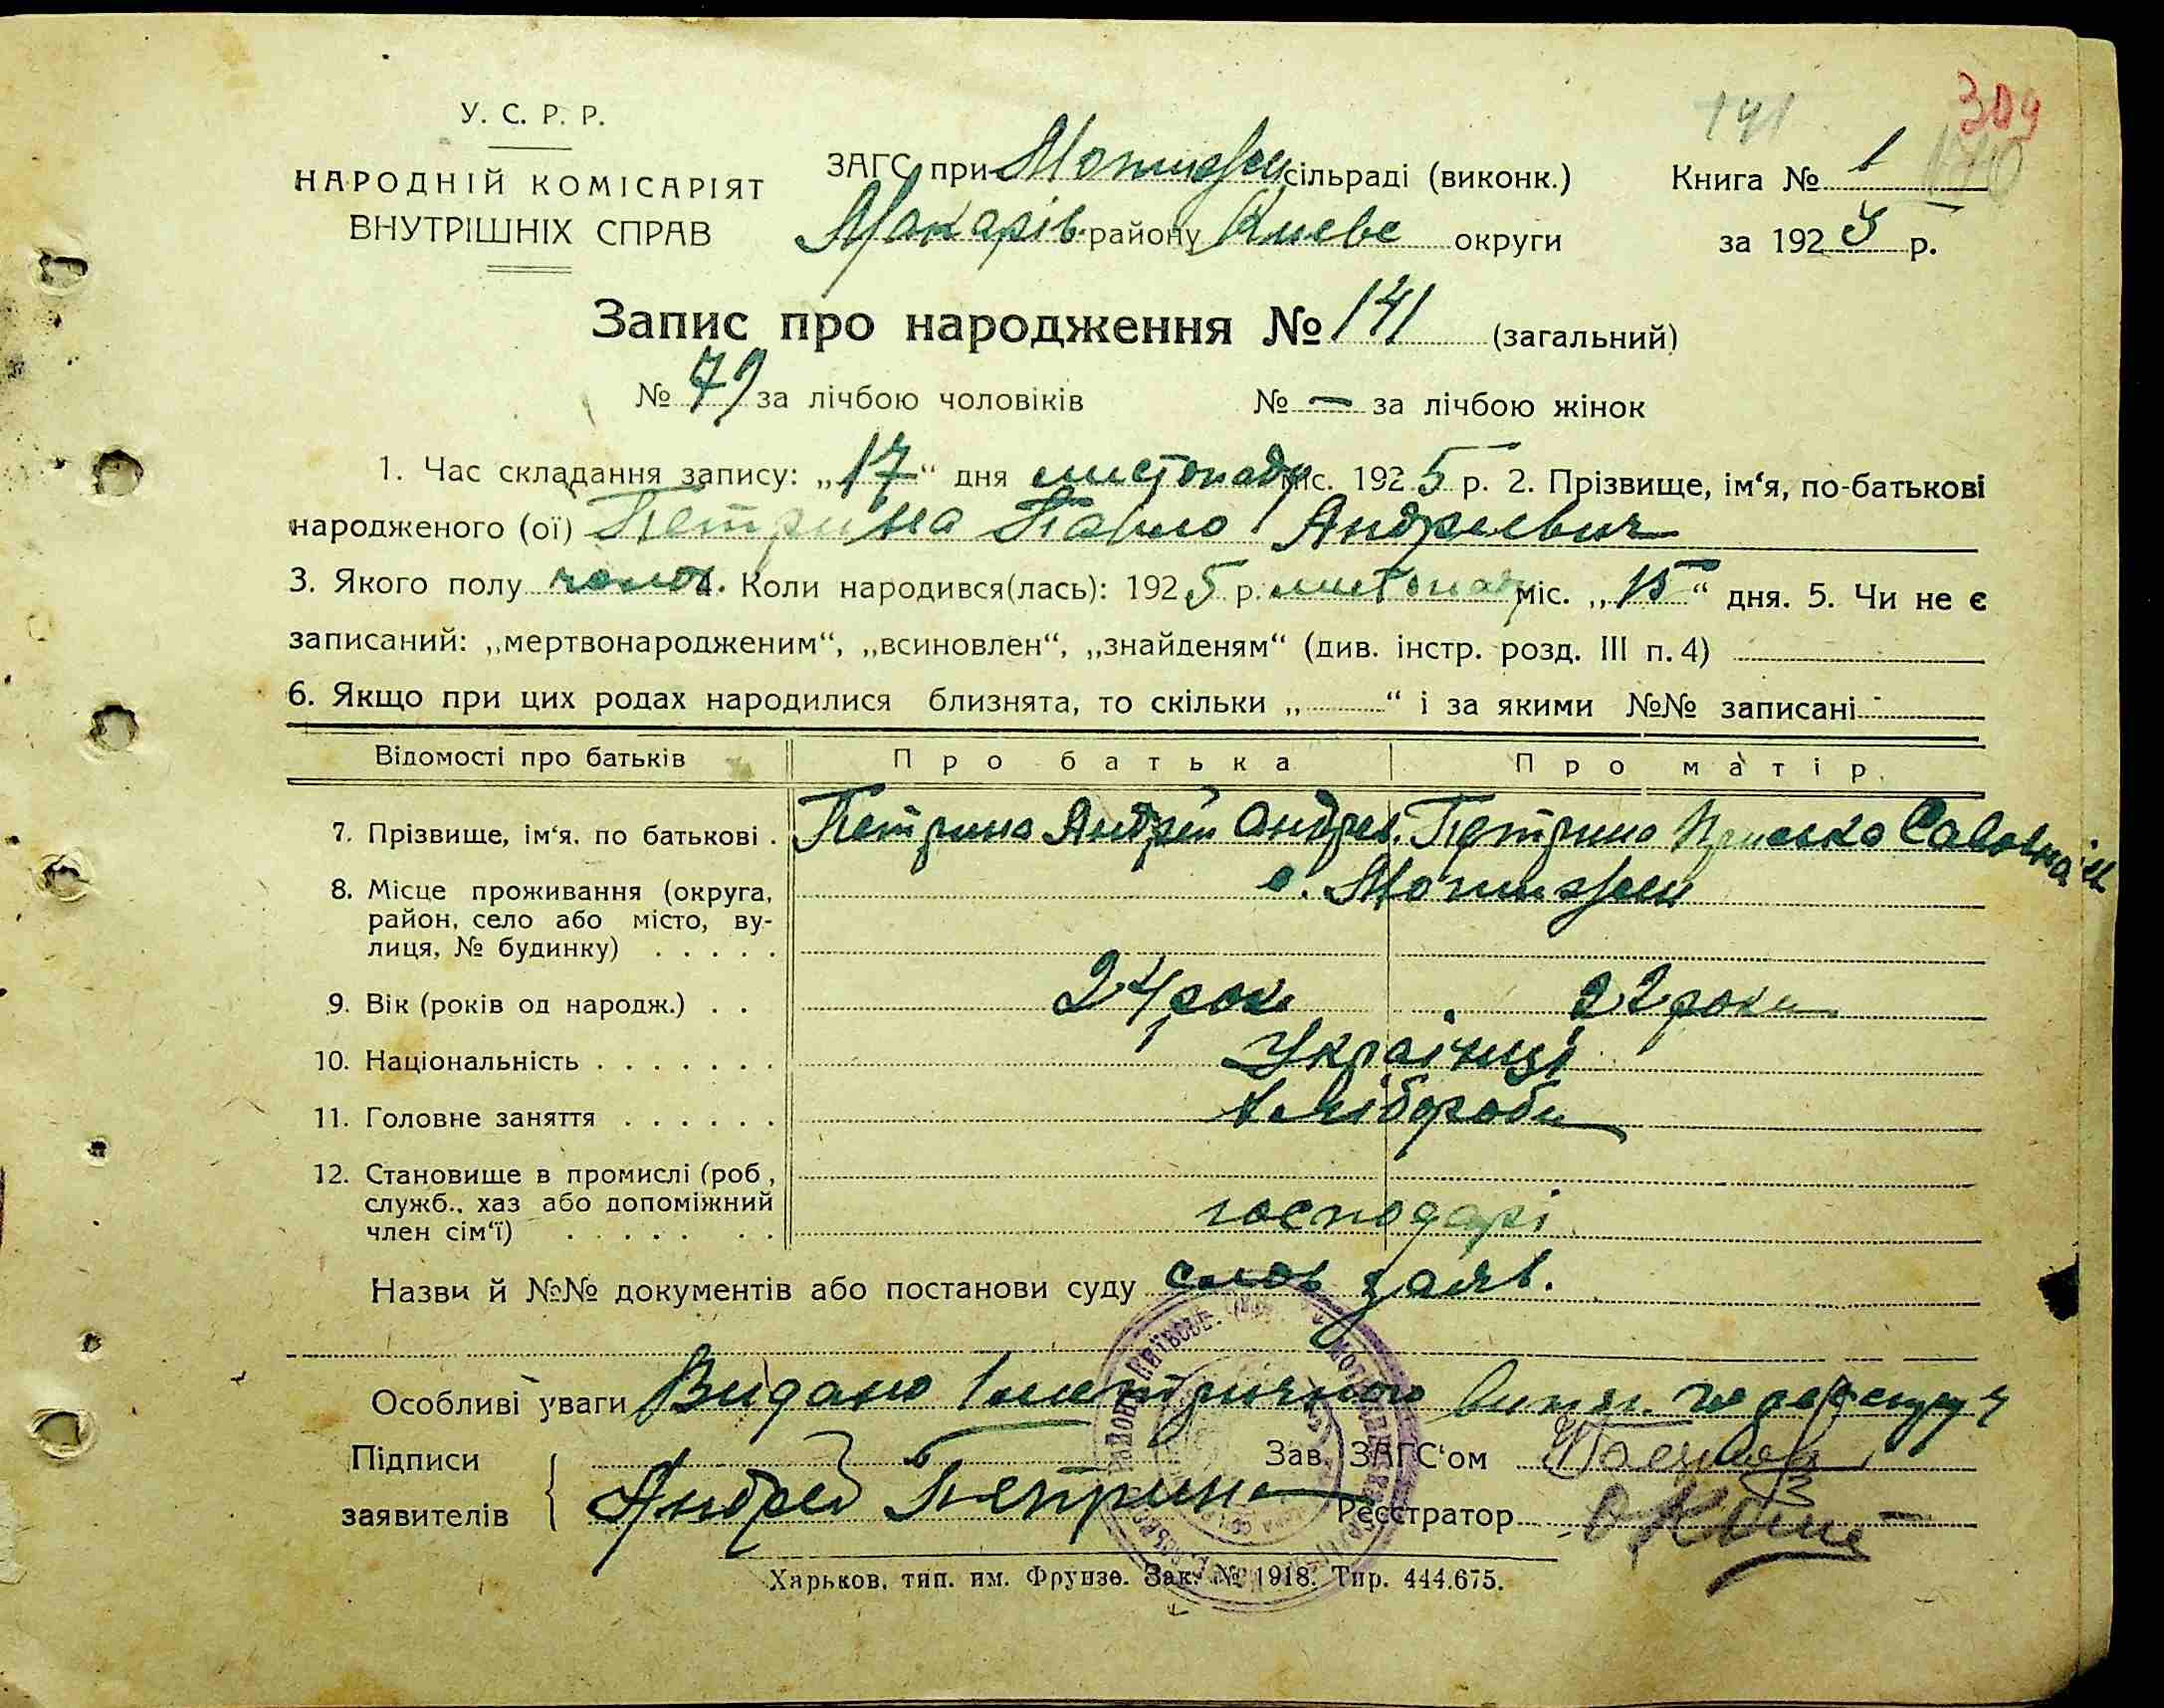 У. С. Р. Р.
НАРОДНІЙ КОМІСАРІЯТ
ВНУТРІШНІХ СПРАВ
141
309
ЗАГС при Мотижен сільраді (виконк.)
Макарів району Києвс округи
Книга № 1
за 1925 р.
Запис про народження № 141 (загальний)
№ 79 за лічбою чоловіків № — за лічбою жінок
1. Час складання запису: „17“ дня листопаду міс. 1925 р. 2. Прізвище, ім‘я, по-батькові
народженого (ої) Петрина Павло Андреевич
3. Якого полу чолов. 4. Коли народився(лась): 1925 р. листопаду міс. „15“ дня. 5. Чи не є
записаний: „мертвонародженим“, „всиновлен“, „знайденям“ (див. інстр. розд. III п. 4)
6. Якщо при цих родах народилися близнята, то скільки „ “ і за якими №№ записані -
Відомості про батьків Про батька Про матір.
7. Прізвище, ім‘я. по батькові . Петрина Андрей Андрев. Петрина Приська Савовна
8. Місце проживання (округа, с. Мотижен
район, село або місто, ву-
лиця, № будинку) . . . . .
9. Вік (років од народж.) . . 24 роки 22 роки
10. Національність . . . . . . . Українці
11. Головне заняття . . . . . . Хлібороби
12. Становище в промислі (роб ,
служб., хаз або допоміжний господарі
член сім‘ї) . . . . . . .
Назви й №№ документів або постанови суду слов заяв.
Особливі уваги Видано метричною витяг.
Підписи
заявителів
Андрей Петрина
Зав. ЗАГС‘ом
Реєстратор
Харьков, тип. им. Фрунзе. Зак. № 1918. Тир. 444.675.